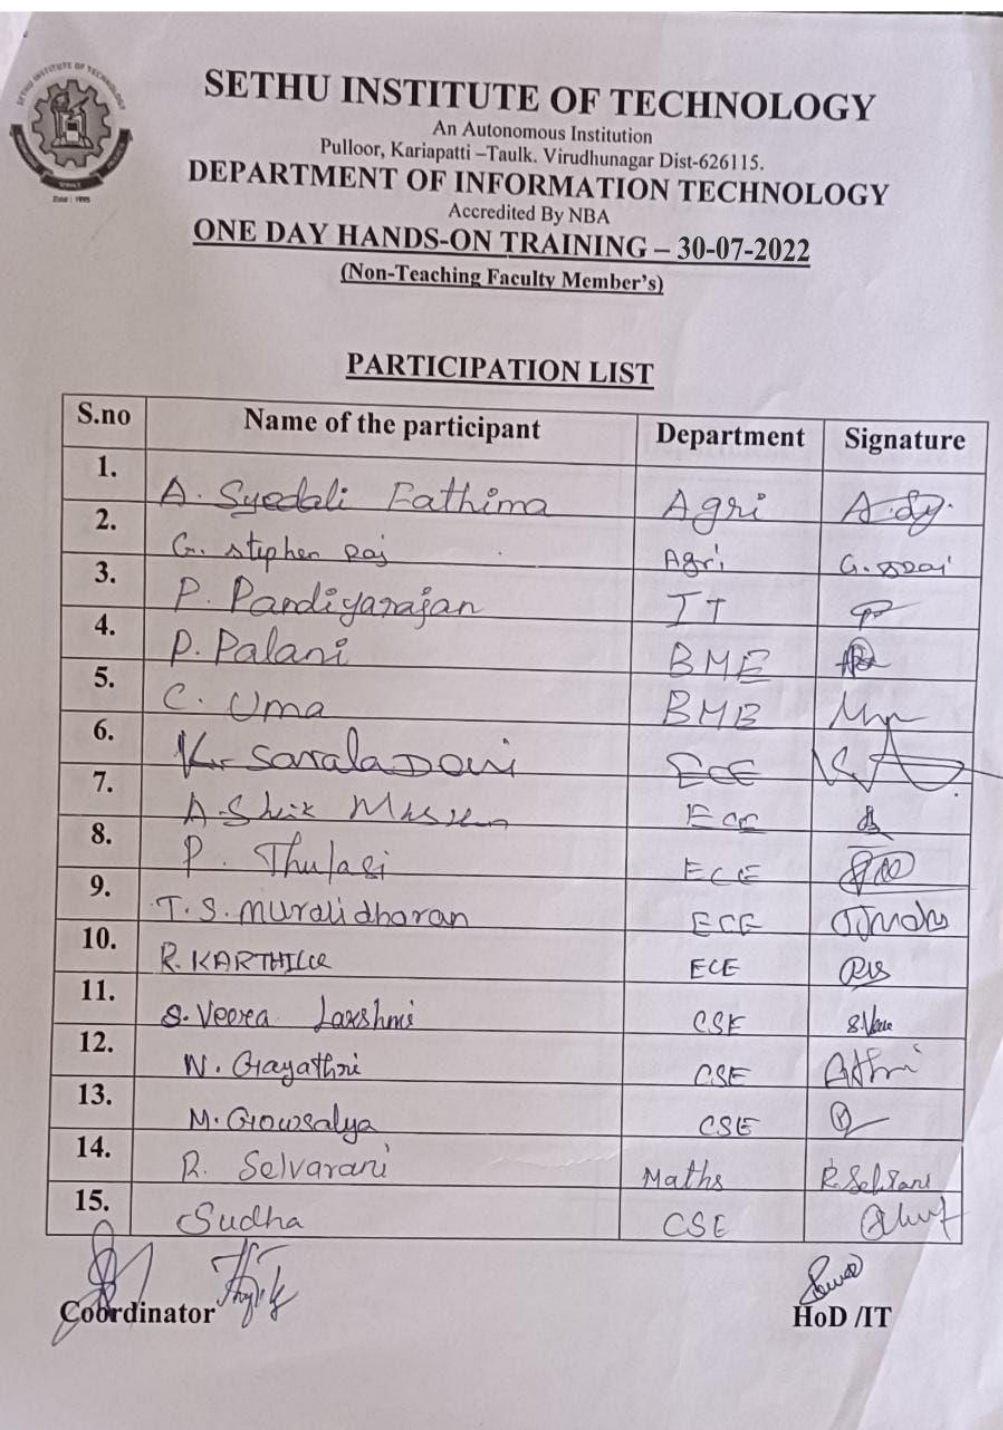 SETHU INSTITUTE OF TECHNOLOGY
An Autonomous Institution
Pulloor, Kariapatti –Taulk. Virudhunagar Dist-626115.
DEPARTMENT OF INFORMATION TECHNOLOGY
Accredited By NBA
ONE DAY HANDS-ON TRAINING – 30-07-2022
(Non-Teaching Faculty Member's)
SETHU INSTITUTE OF TECHNOLOGY
Estd : 1995
PARTICIPATION LIST
S.no Name of the participant Department Signature
1. A. Syedali Fathima Agri
2. G. Stephen Raj Agri
3. P. Pandiyarajan IT
4. P. Palani BME
5. C. Uma BME
6. K. Sarala Devi ECE
7. A. ECE
8. P. Thulasi ECE
9. T.S. Muralidharan ECE
10. R. ECE
11. S. Veera Laxshmi CSE
12. N. Gayathri CSE
13. M. Gowsalya CSE
14. R. Selvarani Maths
15. Sudha CSE
Coordinator HoD /IT